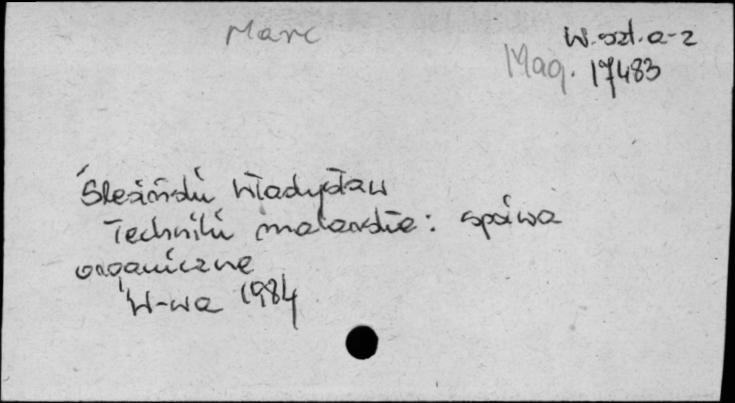 Marc
W. szt. a-z
Mag. 17483
Ślesiński Władysław
Techniki malarskie: spoiwa
organiczne
W-wa 1984